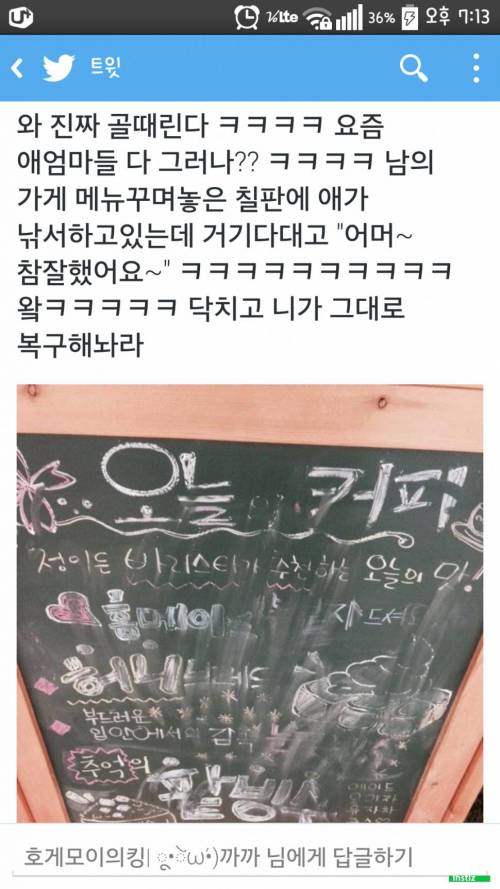 U+ LTE 36% 오후 7:13
트윗
와 진짜 골때린다 ㅋㅋㅋㅋ 요즘
애엄마들 다 그러나?? ㅋㅋㅋㅋ 남의
가게 메뉴꾸며놓은 칠판에 애가
낚서하고있는데 거기다대고 "어머~
참잘했어요~" ㅋㅋㅋㅋㅋㅋㅋㅋㅋㅋㅋ
왘ㅋㅋㅋㅋㅋ 닥치고 니가 그대로
복구해놔라
오늘의 커피
정이든 바리스타가 추천하는 오늘의 맛!
홈메이드
허니브레드
부드러운
입안에서의 감촉
추억의
팥빙수
호게모이의킹| 까까 님에게 답글하기
instiz